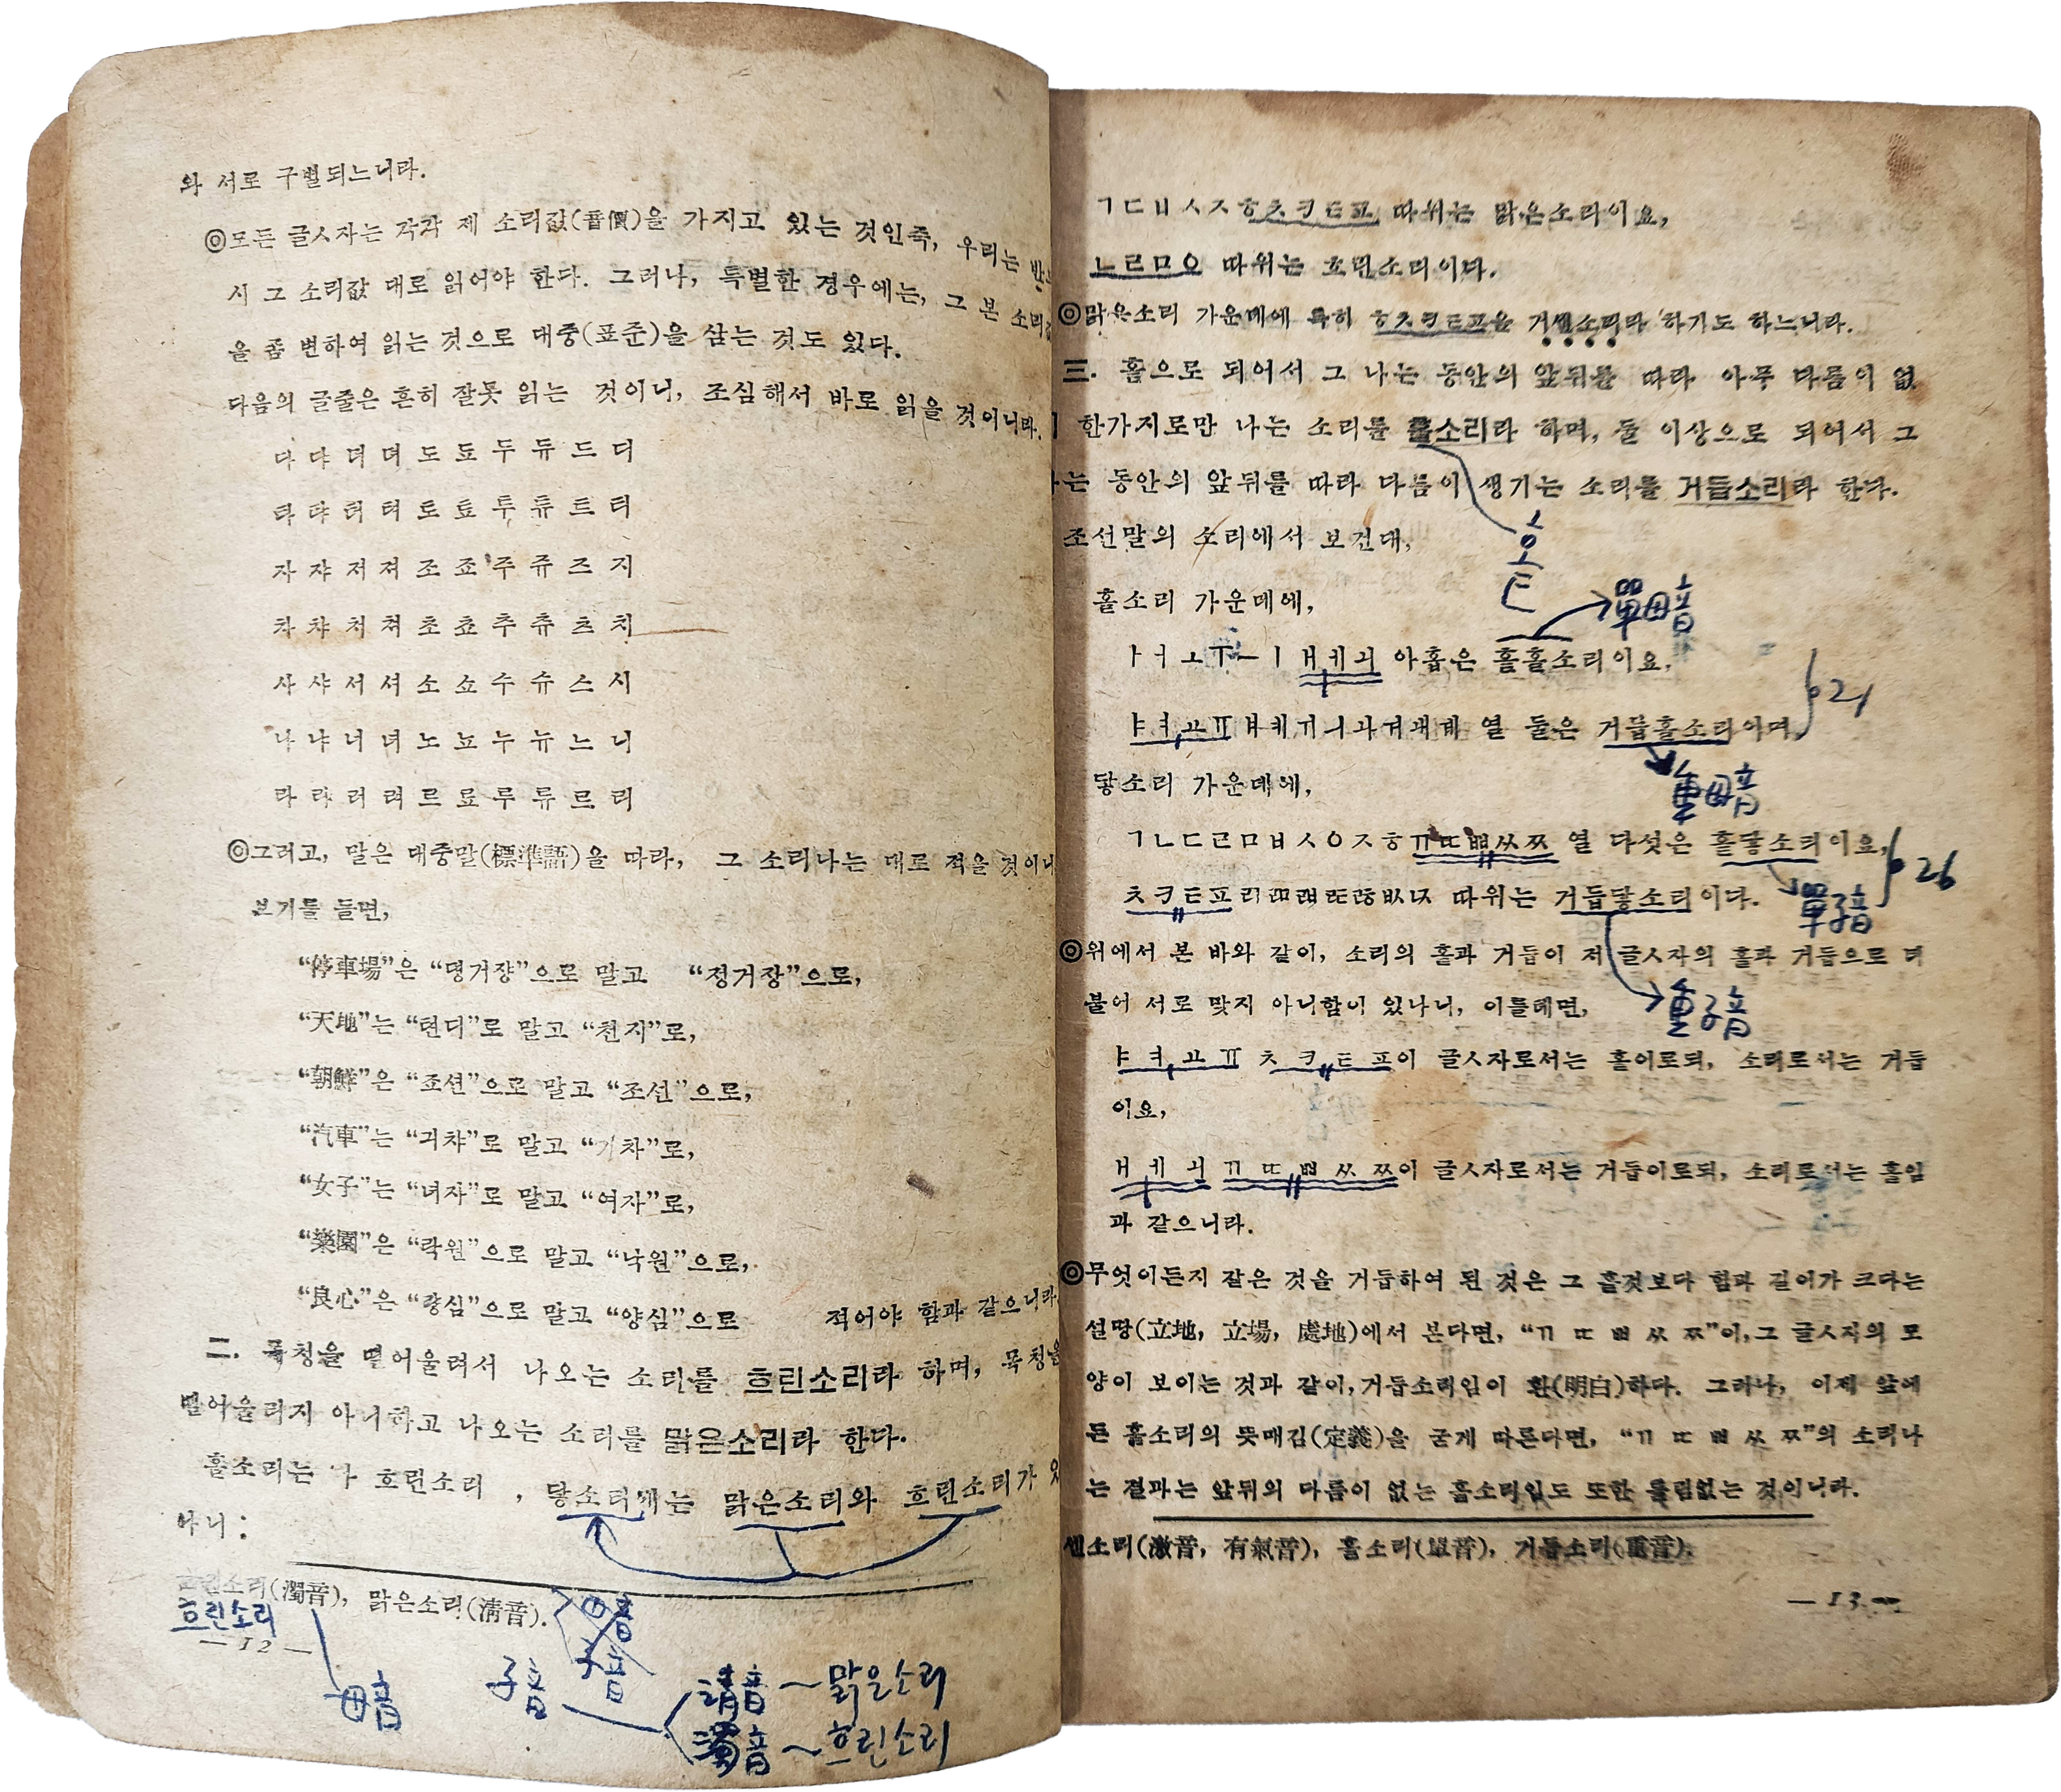 와 서로 구별되느니라.
◎모든 글ㅅ자는 각각 제 소리값(音價)을 가지고 있는 것인즉, 우리는 반드
시 그 소리값 대로 읽어야 한다. 그러나, 특별한 경우에는, 그 본 소리값
을 좀 변하여 읽는 것으로 대중(표준)을 삼는 것도 있다.
다음의 글줄은 흔히 잘못 읽는 것이니, 조심해서 바로 읽을 것이니라.
다 댜 더 뎌 도 됴 두 듀 드 디
타 탸 터 텨 토 툐 투 튜 트 티
자 쟈 저 져 조 죠 주 쥬 즈 지
차 챠 처 쳐 초 쵸 추 츄 츠 치
사 샤 서 셔 소 쇼 수 슈 스 시
나 냐 너 녀 노 뇨 누 뉴 느 니
라 랴 러 려 르 료 루 류 르 리
◎그러고, 말은 대중말(標準語)을 따라, 그 소리나는 대로 적을 것이니
보기를 들면,
“停車場”은 “뎡거쟝”으로 말고 “정거장”으로,
“天地”는 “텬디”로 말고 “천지”로,
“朝鮮”은 “죠션”으로 말고 “조선”으로,
“汽車”는 “긔챠”로 말고 “기차”로,
“女子”는 “녀자”로 말고 “여자”로,
“樂園”은 “락원”으로 말고 “낙원”으로,
“良心”은 “량심”으로 말고 “양심”으로 적어야 함과 같으니라.
二. 목청을 떨어울려서 나오는 소리를 흐린소리라 하며, 목청을
떨어울리지 아니하고 나오는 소리를 맑은소리라 한다.
홀소리는 다 흐린소리, 닿소리에는 맑은소리와 흐린소리가 있
나니:
흐린소리(濁音), 맑은소리(淸音).
흐린소리
— 12 —
母音
母音
子音
子音
淸音~맑은소리
濁音~흐린소리
ㄱㄷㅂㅅㅈㅎㅊㅋㅌㅍ 따위는 맑은소리이요,
ㄴㄹㅁㅇ 따위는 흐린소리이다.
◎맑은소리 가운데에 특히 ㅎㅊㅋㅌㅍ을 거센소리라 하기도 하느니라.
三. 홑으로 되어서 그 나는 동안의 앞뒤를 따라 아무 다름이 없
이 한가지로만 나는 소리를 홑소리라 하며, 둘 이상으로 되어서 그
나는 동안의 앞뒤를 따라 다름이 생기는 소리를 거듭소리라 한다.
조선말의 소리에서 보건대,
홑
홑소리 가운데에,
單母音
ㅏㅓㅗㅜㅡㅣㅐㅔㅚ 아홉은 홑홀소리이요,
ㅑㅕㅛㅠㅒㅖㅟㅢㅘㅝㅙㅞ 열 둘은 거듭홀소리이며,
21
重母音
닿소리 가운데에,
ㄱㄴㄷㄹㅁㅂㅅㅇㅈㅎㄲㄸㅃㅆㅉ 열 다섯은 홑닿소리이요,
26
單子音
ㅊㅋㅌㅍㄺㄻㄼㄾㅀㅄㄳ 따위는 거듭닿소리이다.
◎위에서 본 바와 같이, 소리의 홑과 거듭이 저 글ㅅ자의 홑과 거듭으로 더
불어 서로 맞지 아니함이 있나니, 이를테면,
重子音
ㅑㅕㅛㅠ ㅊㅋㅌㅍ이 글ㅅ자로서는 홑이로되, 소리로서는 거듭
이요,
ㅐㅔㅚ ㄲ ㄸ ㅃ ㅆ ㅉ이 글ㅅ자로서는 거듭이로되, 소리로서는 홑임
과 같으니라.
◎무엇이든지 잘은 것을 거듭하여 된 것은 그 홑것보다 힘과 길이가 크다는
설땅(立地, 立場, 處地)에서 본다면, “ㄲ ㄸ ㅃ ㅆ ㅉ”이, 그 글ㅅ자의 모
양이 보이는 것과 같이, 거듭소리임이 환(明白)하다. 그러나, 이제 앞에
든 홑소리의 뜻매김(定義)을 굳게 따른다면, “ㄲ ㄸ ㅃ ㅆ ㅉ”의 소리나
는 결과는 앞뒤의 다름이 없는 홑소리임도 또한 틀림없는 것이니라.
센소리(激音, 有氣音), 홑소리(單音), 거듭소리(重音).
— 13 —